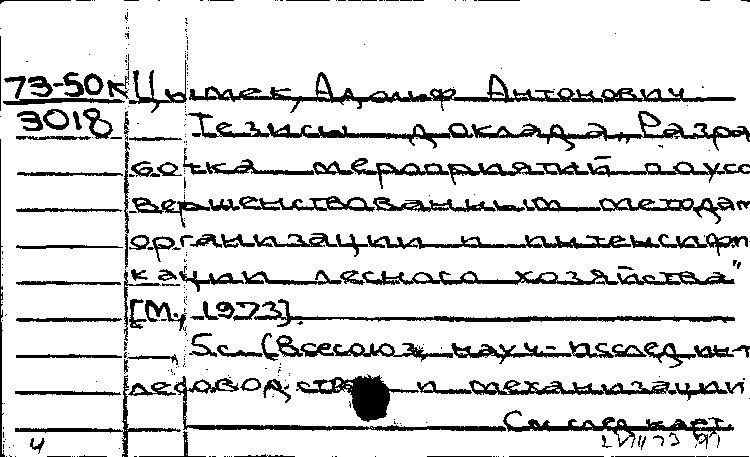 73-50к Цымек, Адольф Антонович.
3018 Тезисы доклада „Разра
ботка мероприятий по усо
вершенствованным методам
организации и интенсифи
кации лесного хозяйства"
[М., 1973].
5с. (Всесоюз. науч-исслед. инт
лесоводства и механизации
См след карт.
4